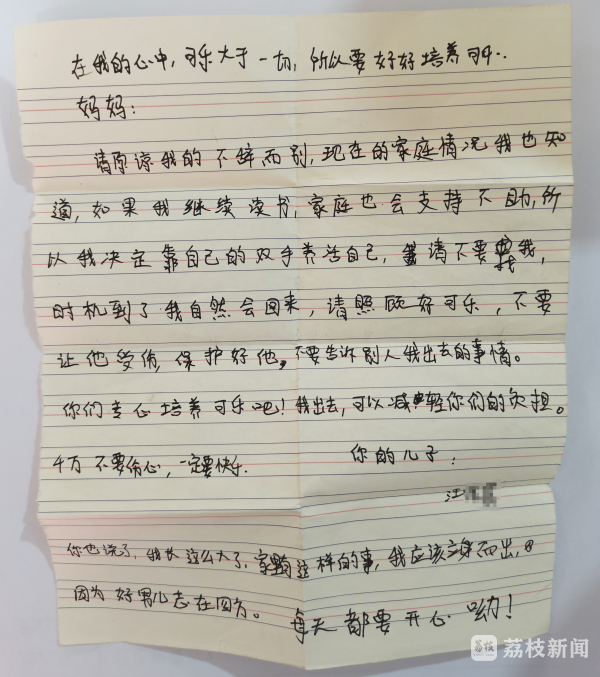 在我的心中,可乐大于一切,所以要好好培养可乐..
妈妈:
请原谅我的不辞而别,现在的家庭情况我也知
道,如果我继续读书,家庭也会支持不助,所
以我决定靠自己的双手养活自己,请不要找我,
时机到了我自然会回来,请照顾好可乐,不要
让他受伤,保护好他,不要告诉别人我出去的事情。
你们专心培养可乐吧!我出去,可以减轻你们的负担。
千万不要伤心,一定要快乐.
你的儿子:
汪
你也说了,我长这么大了,家有这样的事,我应该挺身而出,
因为好男儿志在四方。每天都要开心呦!
荔枝 荔枝新闻